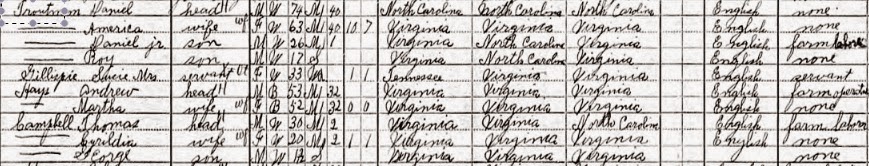 Troutman Daniel head M W 74 M1 40 North Carolina North Carolina North Carolina English none
—— America wife F W 63 M1 40 10 7 Virginia Virginia Virginia English none
—— Daniel jr son M W 26 M1 1 Virginia North Carolina Virginia English farm laborer
—— Roy son M W 17 S Virginia North Carolina Virginia English none
Gillispie Sucie Mrs. servant F W 33 1 1 Tennessee Virginia Virginia English servant
Hays Andrew head M B 53 M1 32 Virginia Virginia Virginia English farm
—— Martha wife F B 52 M1 32 0 0 Virginia Virginia Virginia English none
Campbell Thomas head M W 30 M 2 Virginia Virginia North Carolina English farm laborer
—— wife F W 20 M 2 1 1 Virginia Virginia Virginia English none
—— George son M W S Virginia Virginia Virginia none